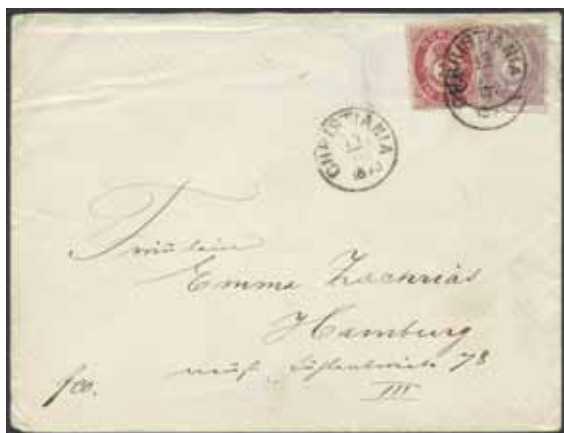 CHRISTIANIA
CHRISTIANIA
Fräulein
Emma Zachrias
Hamburg
78
III
fco.